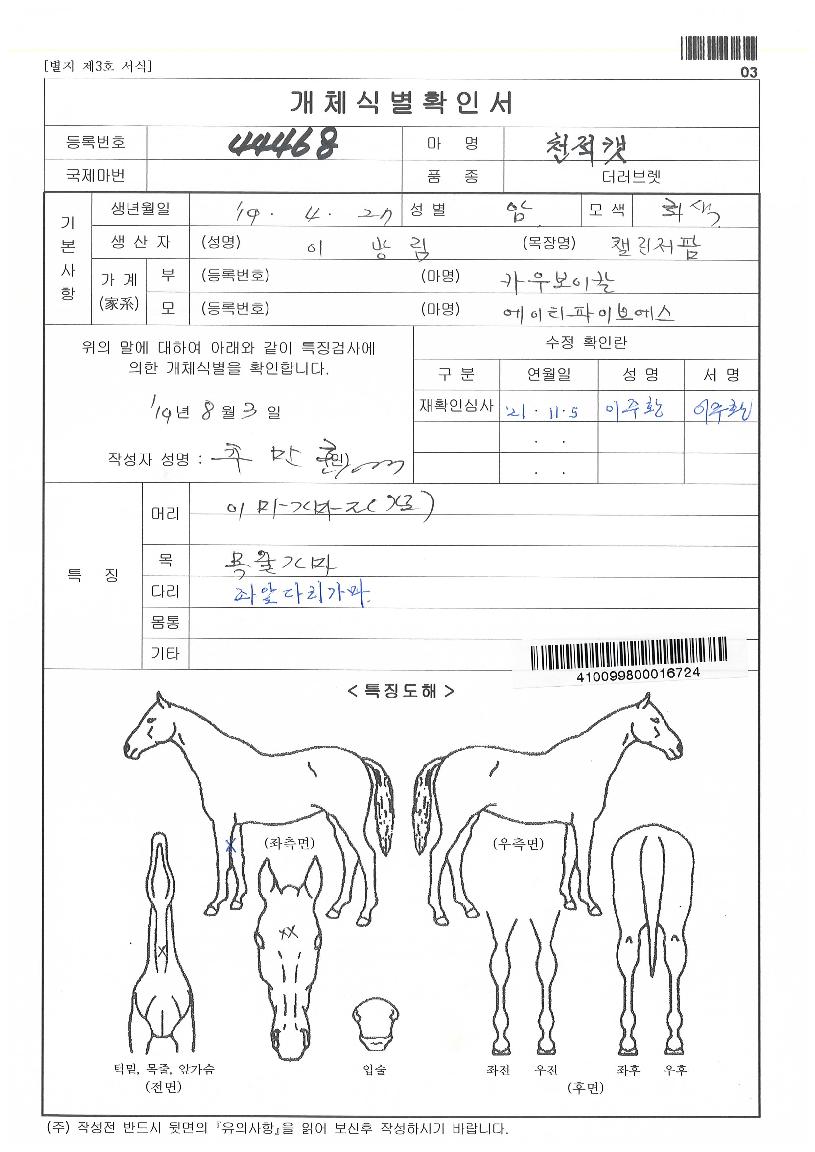 03
[별지 제3호 서식]
개체식별확인서
등록번호 44468 마 명 천적캣
국제마번 품 종 더러브렛
기본사항
생년월일 '19. 4. 27 성별 암 모색 회색
생산자 (성명) 이 방 림 (목장명) 챌린저팜
가계 (家系) 부 (등록번호) (마명) 카우보이칼
모 (등록번호) (마명) 에이티파이브에스
위의 말에 대하여 아래와 같이 특징검사에
의한 개체식별을 확인합니다.
'19년 8월 3일
작성사 성명 : 주 만 (인)
수정 확인란
구 분 연월일 성 명 서 명
재확인심사 '21. 11. 5 이주환 이주환
. .
. .
특 징
머리 이마가마포(쌍)
목 목줄가마
다리 좌앞다리가마.
몸통
기타
410099800016724
< 특징도해 >
(좌측면) (우측면)
턱밑, 목줄, 앞가슴
(전면)
입술
좌전 우전 좌후 우후
(후면)
(주) 작성전 반드시 뒷면의 『유의사항』을 읽어 보신후 작성하시기 바랍니다.